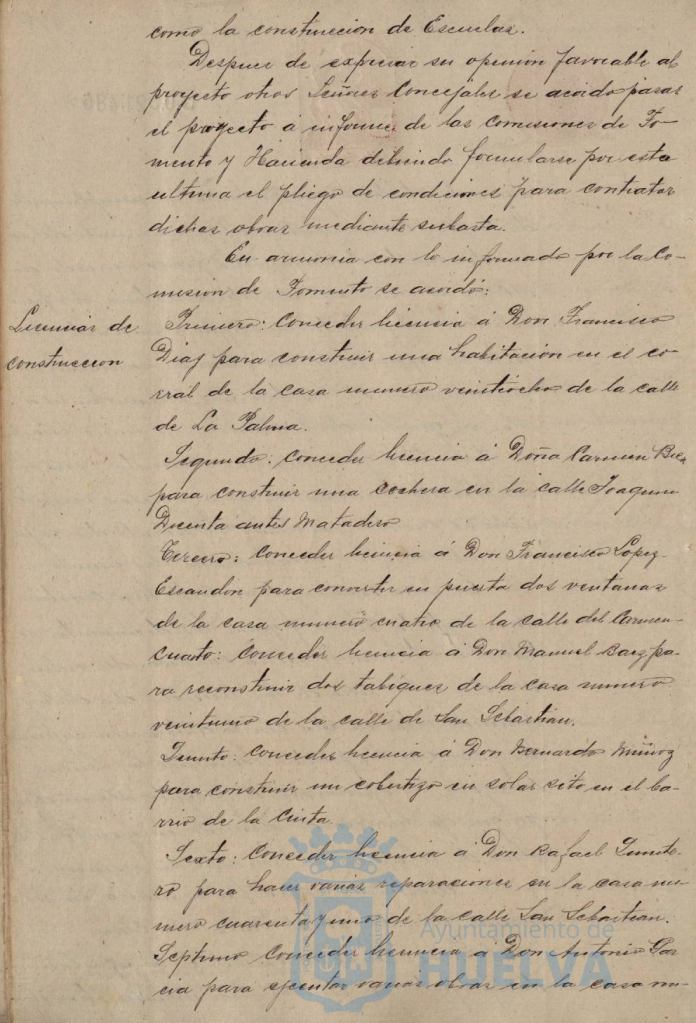 como la construccion de Escuelas.
Despues de expresar su opinion favorable al
proyecto otros Señores Concejales se acordó pasar
el proyecto á informe de las comisiones de Fo-
mento y Hacienda debiendo formularse por esta
ultima el pliego de condiciones para contratar
dichas obras mediante subasta.
En armonia con lo informado por la Co-
mision de Fomento se acordó:
Licencias de
construccion
Primero: Conceder licencia á Don Francisco
Diaz para construir una habitación en el co-
rral de la casa numero veintiocho de la calle
de La Palma.
Segundo: Conceder licencia á Doña Carmen
para construir una cochera en la calle Joaquin
Dicenta antes Matadero
Tercero: Conceder licencia á Don Francisco Lopez
Escandon para convertir en puerta dos ventanas
de la casa numero cuatro de la calle del Carmen
Cuarto: Conceder licencia á Don Manuel Baez pa-
ra reconstruir dos tabiques de la casa numero
veintiuno de la calle de San Sebastián.
Quinto: Conceder licencia á Don Bernardo Muñoz
para construir un cobertizo en solar sito en el ba-
rrio de la Cinta.
Sexto: Conceder licencia á Don Rafael Quinte-
ro para hacer varias reparaciones en la casa nu-
mero cuarenta y uno de la calle San Sebastian.
Septimo Conceder licencia á Don Antonio Gar-
cia para ejecutar varias obras en la casa nu-
Ayuntamiento de
HUELVA